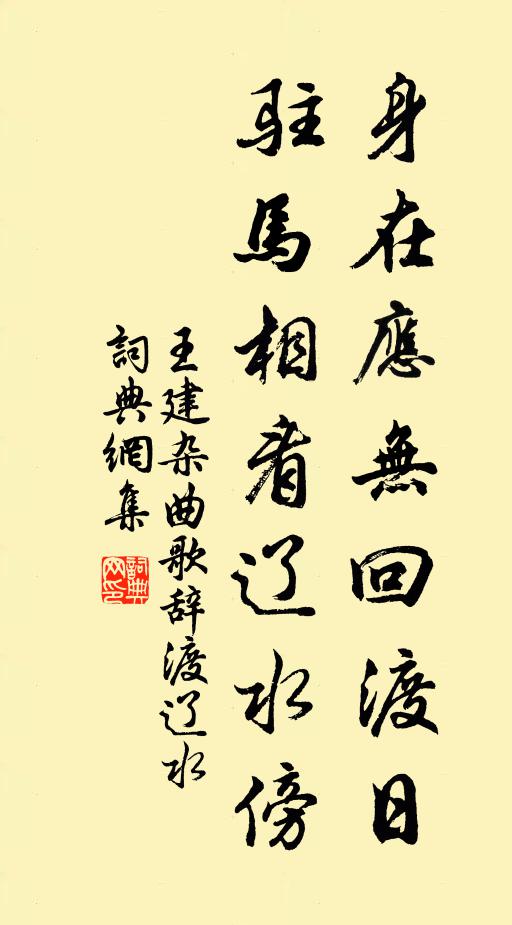 身在應無回渡日
駐馬相看辽水傍
王建杂曲歌辞渡辽水
詞典網集
詞典网印